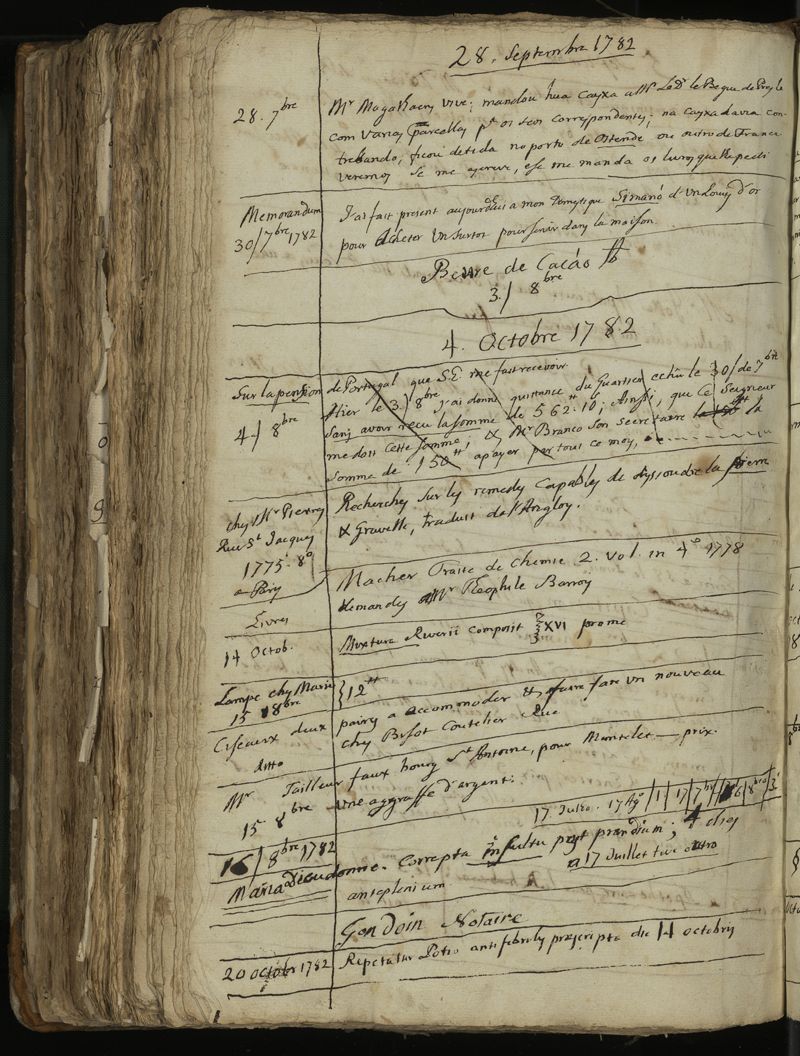 28. Septembre 1782
28. 7bre
Mr Magalhaens vive; mandou hua Cayxa a Mr le Dr le Begue de
com varias parcellas pa os seus correspondentes; na cayxa davia con-
trabando, ficou detida no porto de Ostende ou outro de France
veremos se me escreve, e se me manda os livros que lhe pedi
Memorandum
30/7bre 1782
J'ai fait present aujourdhui a mon Domestique Simano d'un Louis d'or
pour Acheter un surtout pour servir dans la maison
Beurre de Cacáo ℔
3./ 8bre
4. Octobre 1782
Sur la pension de Portugal que S.E. me fait recevoir
4./ 8bre
Hier le 3/ 8bre j'ai donné quittance du Quartier echu le 30/ de 7bre
sans avoir reçu la somme de 562tt 10; Ainsi, que Ce Seigneur
me doit cette somme; & Mr Branco son secretaire la
somme de 150tt a payer par tout ce moy,
chez Mr Pierres
Rue St Jacques
1775. 8o
a Paris
Recherches sur les remedes capables de dissoudre la pierre
& Gravelle, traduit de l'Anglois.
Livres
Macher Traite de Chemie 2. vol. in 4o 1778
demandes a Mr Theophile Barrois
14 Octob.
Mixtura Riverii composit ℥ XVI pro me
Lampe chez Marie
15 8bre
12tt
Ciseaux deux paires a accommoder & faire faire un nouveau
ditto
chez Bisot Coutelier Rue
Mr Tailleur faux bourg St Antoine, pour Mantelet — prix.
15 8bre
une aggraffe d'argent.
16/ 8bre 1782
17 Julho. 17 Ago
Maria Dieudonne. Correpta insultu post prandium; 4 dies
a 17 Juillet
anteplenium
Gondoin Notaire
20 octobr 1782
Repetatur Potio antifebrilis præscripta die 14 octobris